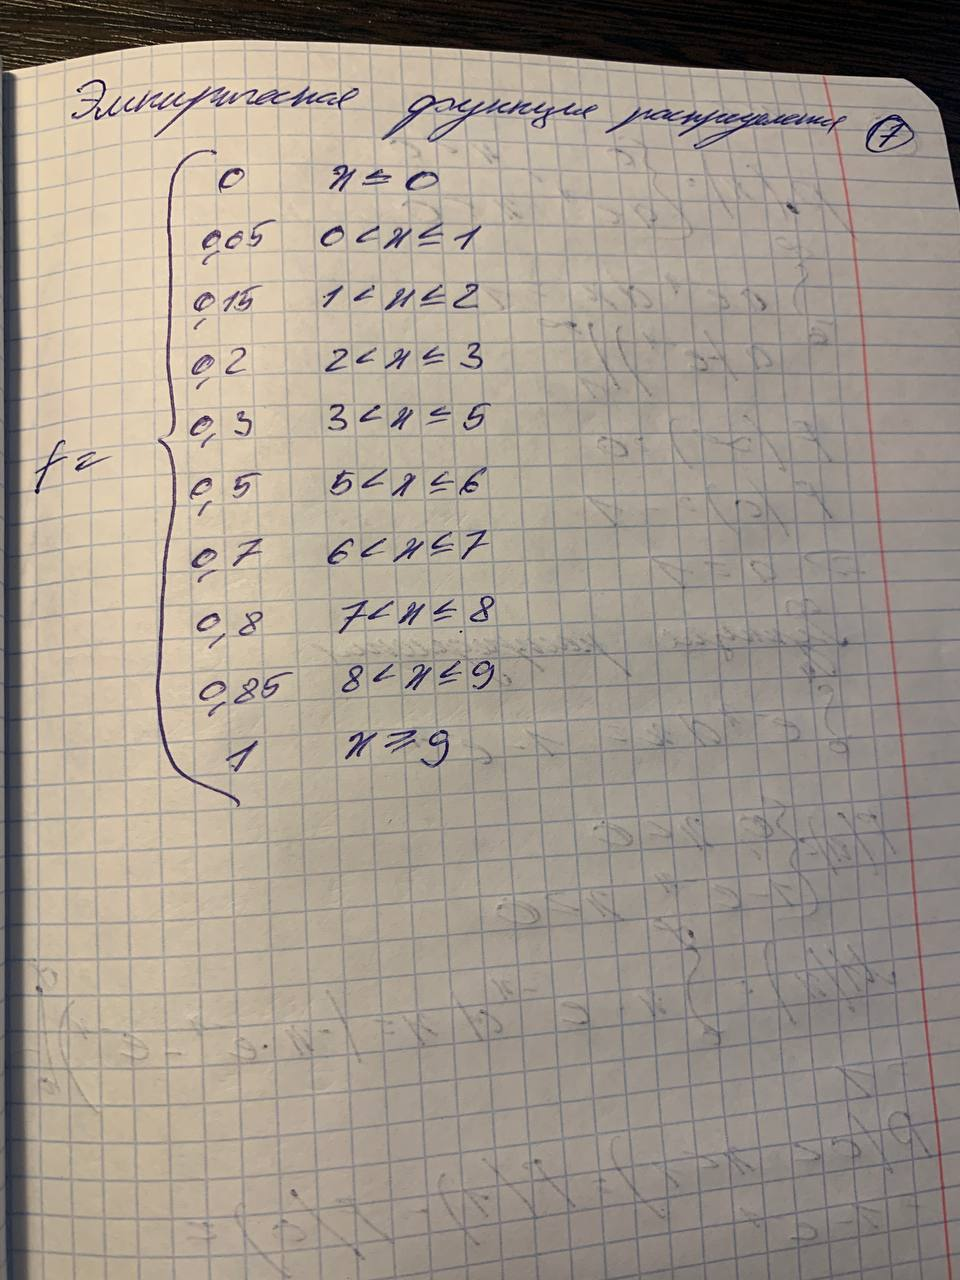 Эмпирическая функция распределения 7
0 x ≤ 0
0,05 0 < x ≤ 1
0,15 1 < x ≤ 2
0,2 2 < x ≤ 3
0,3 3 < x ≤ 5
f =
0,5 5 < x ≤ 6
0,7 6 < x ≤ 7
0,8 7 < x ≤ 8
0,85 8 < x ≤ 9
1 x ≥ 9